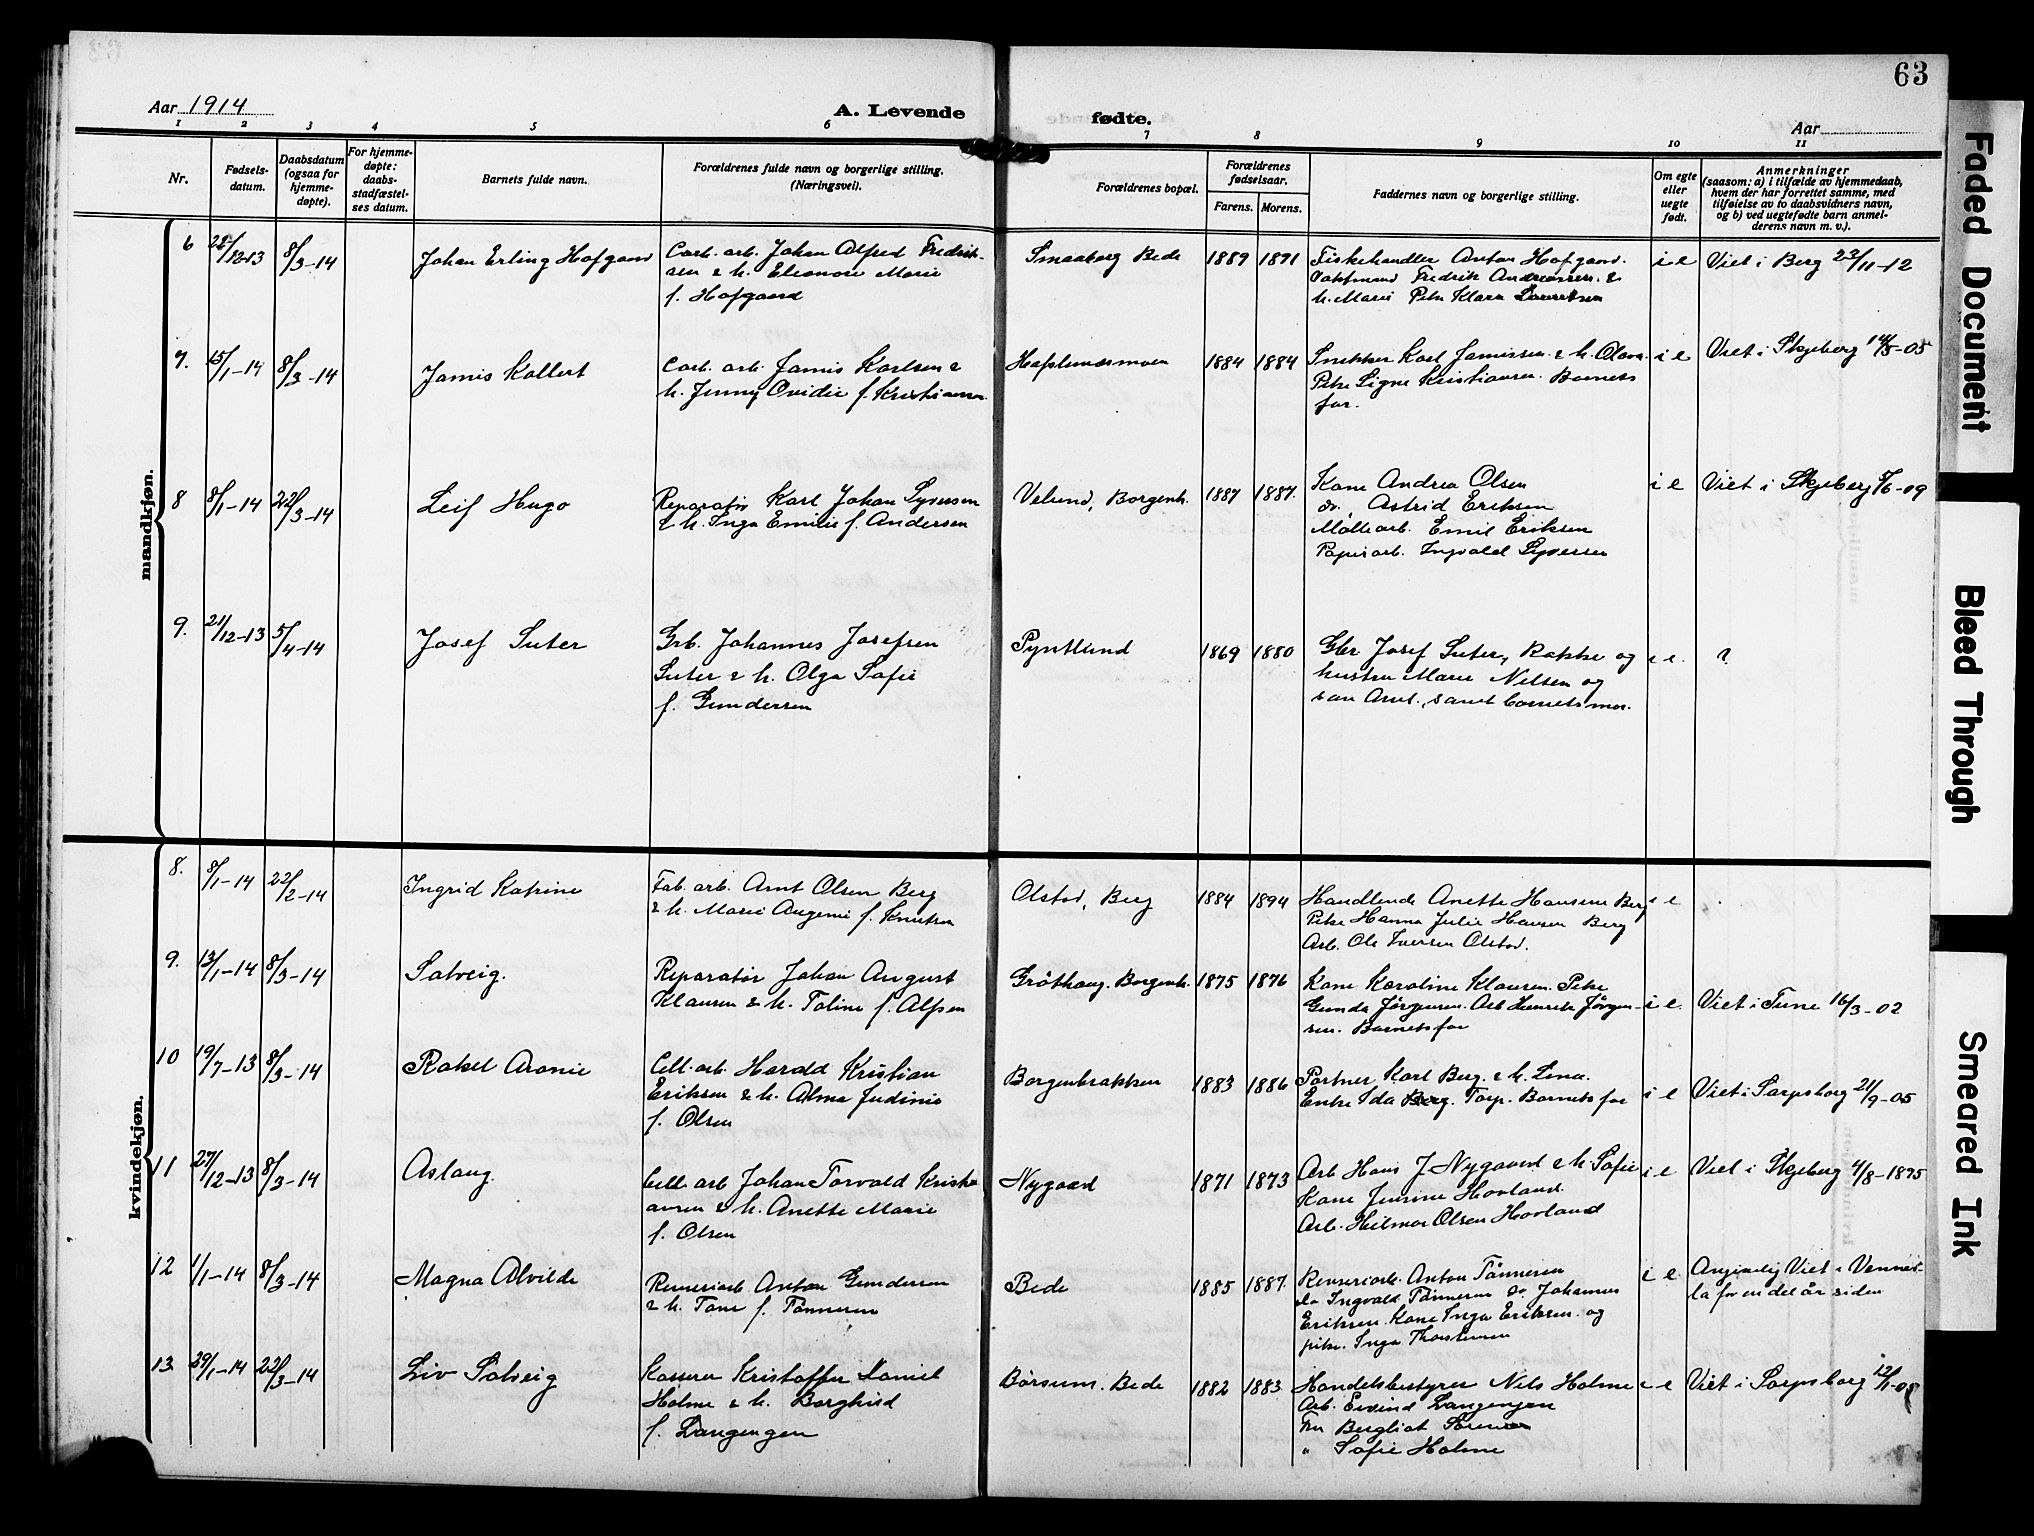 63
Aar 1914
A. Levende
fødte.
Aar
1 2 3 4 5 6 7 8 9 10 11
Nr.
Fødsels-
datum.
Daabsdatum
(ogsaa for
hjemme-
døpte).
For hjemme-
døpte:
daabs-
stadfæstel-
ses datum.
Barnets fulde navn.
Forældrenes fulde navn og borgerlige stilling.
(Næringsvei).
Forældrenes bopæl.
Forældrenes
fødselsaar.
Farens. Morens.
Faddernes navn og borgerlige stilling.
Om egte
eller
uegte
født.
Anmerkninger
(saasom: a) i tilfælde av hjemmedaab,
hvem der har forrettet samme, med
tilføielse av to daabsvidners navn,
og b) ved uegtefødte barn anmel-
derens navn m. v.).
mandkjøn.
6 /12-13 8/3-14 Johan Erling Hofgaard
Carb. arb. Johan Alfred Fredrik-
sen & h. Eleonore Marie
f. Hofgaard
Smaaborg Bede 1889 1891
Fiskehandler Anton Hofgaard.
Fredrik Andreassen &
h. Marie Pike Klara Lauritsen
i e Viet i Berg 23/11-12
7. 15/1-14 8/3-14 Jamis Kollert
Carb. arb. Jamis Karlsen &
h. Jenny Ovidie f. Kristiansen
Haflundsmoen 1884 1884
Snekker Karl Jamissen & h. Olava
Pike Signe Kristiansen. Barnets
far.
i e Viet i Skjeberg 14/5-05
8 8/1-14 22/3-14 Leif Hugo
Reparatør Karl Johan Syversen
& h. Inga Emilie f. Andersen
Velund, Borgenh. 1887 1887.
Kone Andrea Olsen
do. Astrid Eriksen
Møllearb. Emil Eriksen
Papirarb. Ingvald Syversen
i e Viet i Skjeberg /6-09
9. 21/12-13 5/4-14 Josef Suter
Grb. Johannes Josefsen
Suter & h. Olga Sofie
f. Gundersen
Pyntlund 1869 1880
Gbr Josef Suter, Rakke og
hustru Marie Nilsen og
søn Arnt, samt barnets mor.
i e. ?
kvindekjøn.
8. 8/1-14 22/2-14 Ingrid Katrine
Fab. arb. Arnt Olsen Berg
& h. Marie Augenie f. Knutsen
Olstad, Berg 1884 1894
Handlende Anette Hansen Berg
Pike Hanna Julie Hansen Berg
Arb. Ole Iversen Olstad.
i e
9. 13/1-14 8/3-14 Solveig.
Reparatør Johan August
Klausen & h. Toline f. Alfsen
Gråthaug. Borgenh. 1875 1876
Kone Karoline Klausen. Pike
Gunda Jørgensen. Arb Henrik Jørgen-
sen. Barnets far
i e. Viet i Tune 16/3-02
10 19/7-13 8/3-14 Rakel Aronie
Cell. arb. Harald Kristian
Eriksen & h. Alma Judinie
f. Olsen
Borgenbrakken 1883 1886
Portner Karl Berg. & h. Lina.
Enke Ida Berg. Torp. Barnets far
i e Viet i Sarpsborg 21/9-05
11 27/12-13 8/3-14 Aslaug.
Cell. arb Johan Torvald Kristi-
ansen & h. Anette Marie
f. Olsen
Nygaard 1871 1873
Arb Hans J Nygaard & h. Sofie
Kone Jensine Hovland.
Arb. Hilmar Olsen Hovland
i e Viet i Skjeberg 4/8-1895
12 1/1-14 8/3-14 Magna Alvilde
Renseriarb Anton Gundersen
& h. Tone f. Tønnesen
Bede 1885 1887.
Renseriarb. Anton Tønnesen
do Ingvald Tønnesen do. Johannes
Eriksen. Kone Inga Eriksen. og
pike. Inga Thorstensen
i e Angivelig Viet i Vennes-
la for en del år siden
13 29/1-14 22/3-14 Liv Solveig
Kasserer Kristoffer Daniel
Holme & h. Borghild
f. Langengen
Børsum. Bede 1882 1883
Handelsbestyrer Nils Holme
Arb. Eivind Langengen
Fru Bergliot
" Sofie Holme
i e Viet i Sarpsborg 12/
Faded Document
Bleed Through
Smeared Ink